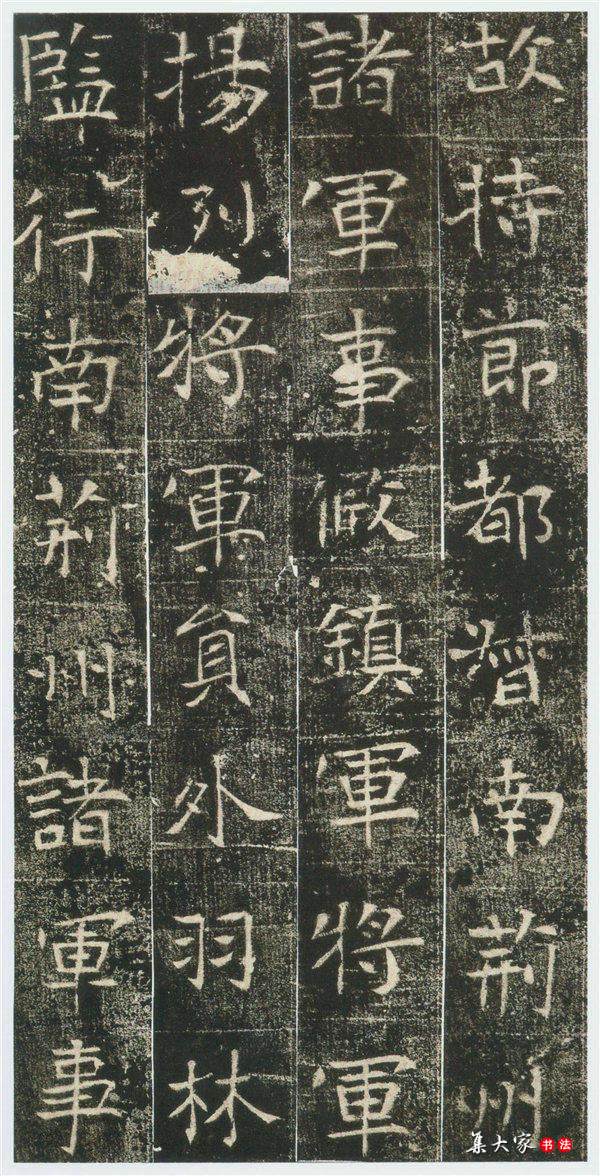 故持節都督南荊州
諸軍事假鎮軍將軍
揚列將軍負外羽林
監行南荊州諸軍事
集大家 书法